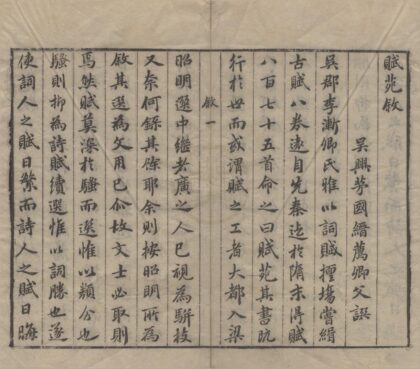 賦苑敘
吳興茅國縉薦卿父譔
吳郡李漸卿氏雅以詞賦擅塲嘗緝
古賦八卷遠自先秦迄於隋末得賦
八百七十五首命之曰賦苑其書旣
行於世而或謂賦之工者大都入梁
敘 一
昭明選中繼者廣之人已視為駢技
又奈何錄其餘耶余則按昭明所為
敘其選為文用已
故文士必取則
焉然賦莫深於騷而選惟以類分也
騷則抑為詩賦續選惟以詞勝也遂
使詞人之賦日繁而詩人之賦日晦